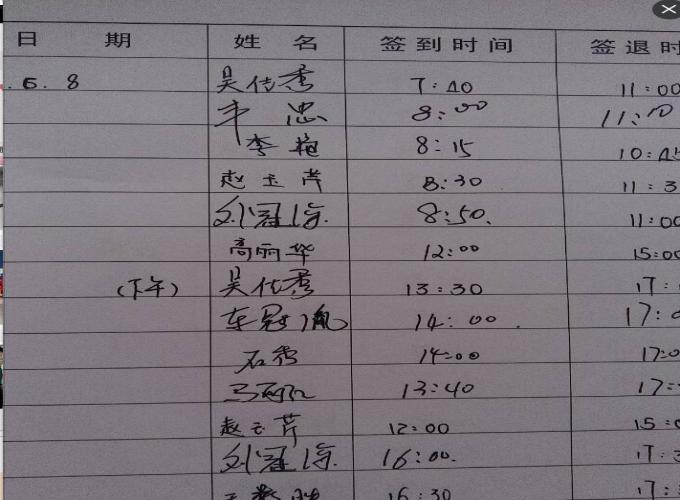 日 期 姓 名 签到时间 签退时
.6.8 吴佳秀 7:40 11:00
丰 忠 8:00 11:10
李 艳 8:15 10:45
赵玉芹 8:30 11:3
刘冠 8:50. 11:00
高丽华 12:00 15:00
(下午) 吴佳秀 13:30 17:
车冠 14:00 17:0
石秀 14:00 17:0
马丽 13:40 17:
赵玉芹 12:00 15:0
刘冠 16:00. 17:3
16:30 17: